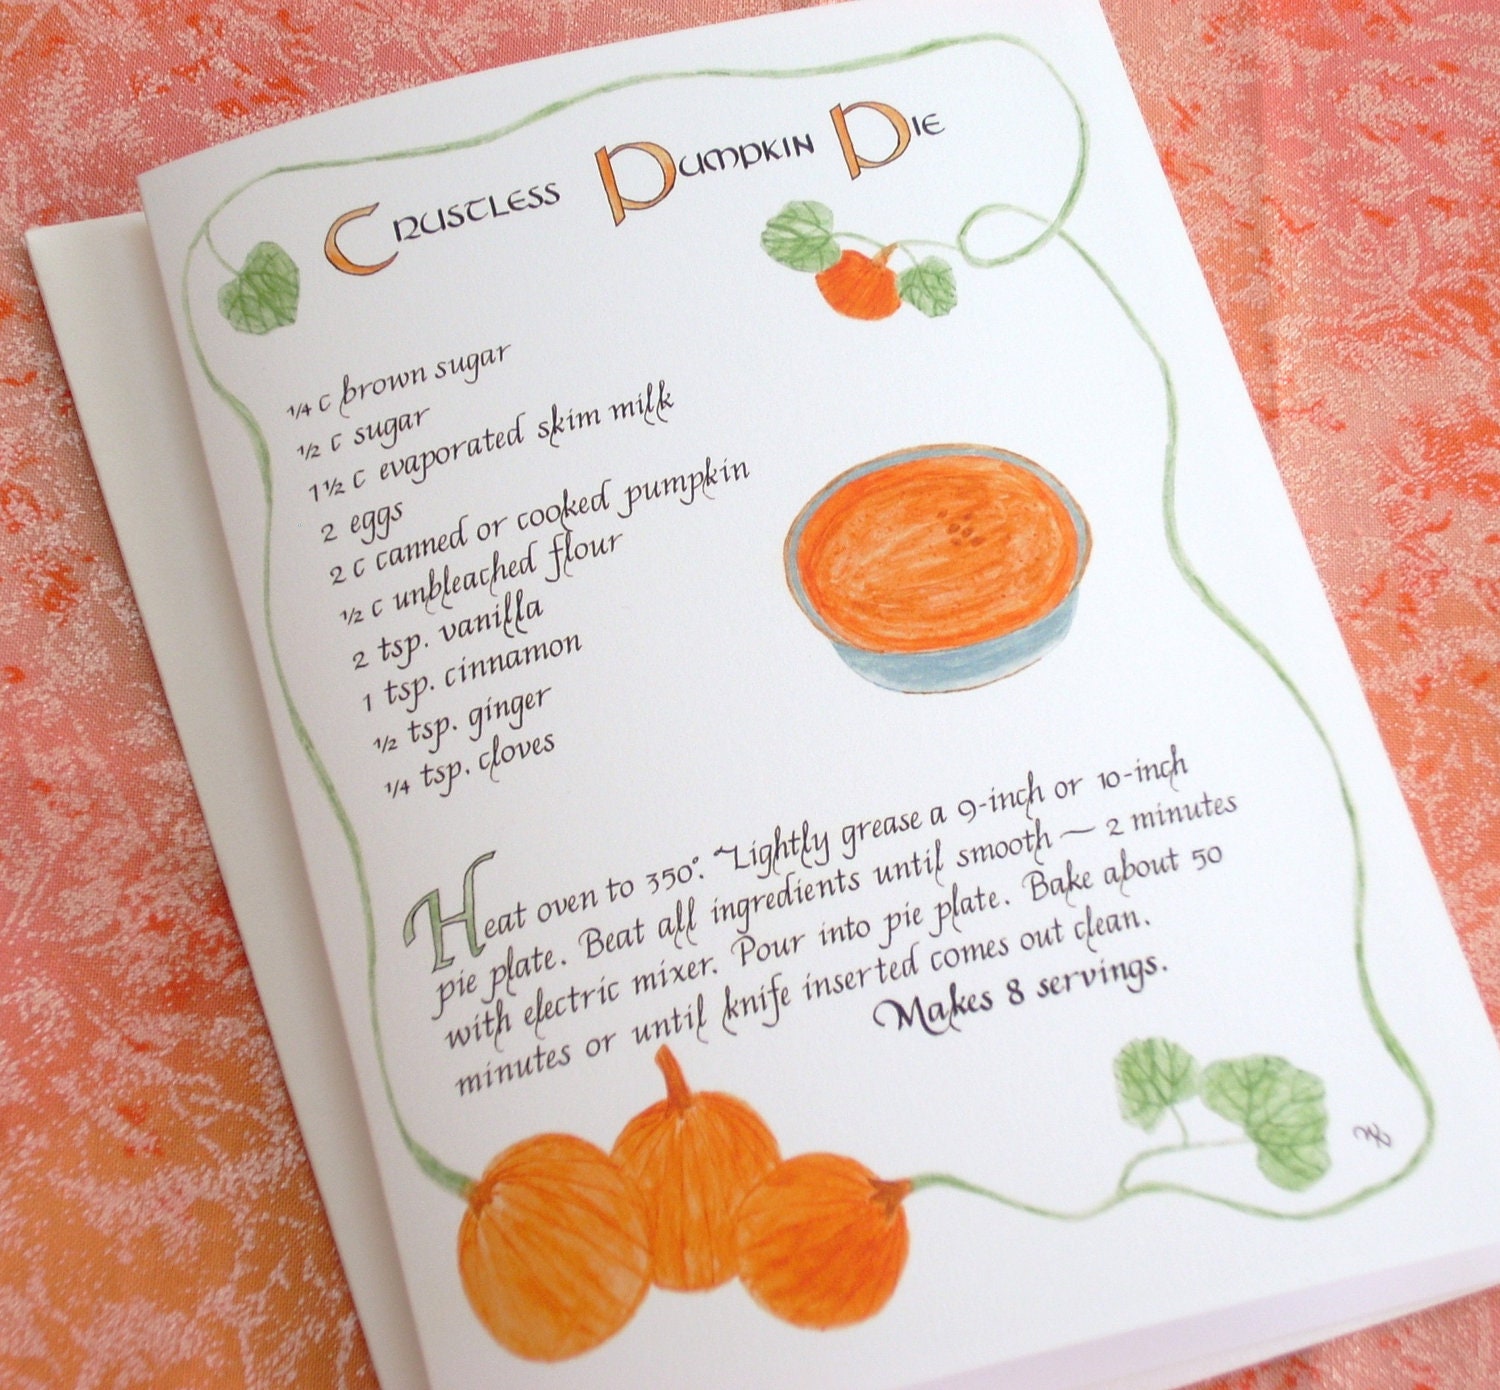 Crustless Pumpkin Pie
1/4 c brown sugar
1/2 c sugar
1 1/2 c evaporated skim milk
2 eggs
2 c canned or cooked pumpkin
1/2 c unbleached flour
2 tsp. vanilla
1 tsp. cinnamon
1/2 tsp. ginger
1/4 tsp. cloves
Heat oven to 350°. Lightly grease a 9-inch or 10-inch
pie plate. Beat all ingredients until smooth — 2 minutes
with electric mixer. Pour into pie plate. Bake about 50
minutes or until knife inserted comes out clean.
Makes 8 servings.